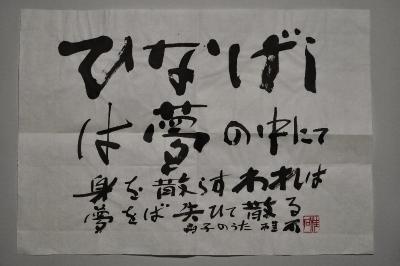 ひなげし
は夢の中にて
身を散らすわれは
夢をば失ひて散る
晶子のうた